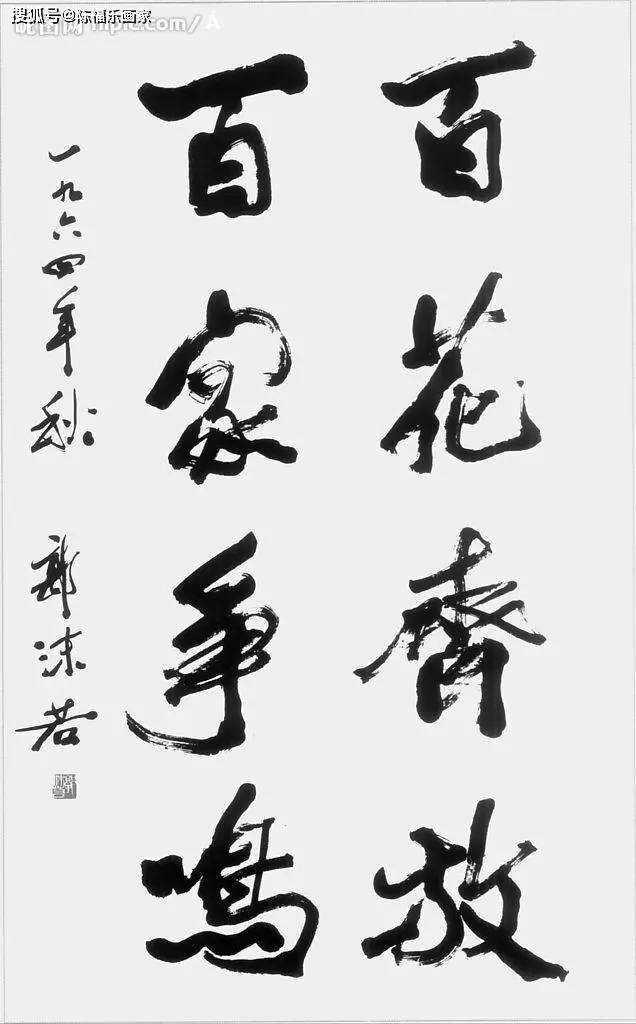 搜狐号@陈福乐画家
昵图网 nipic.com/A
百花齊放
百家争鳴
一九六四年秋
郭沫若